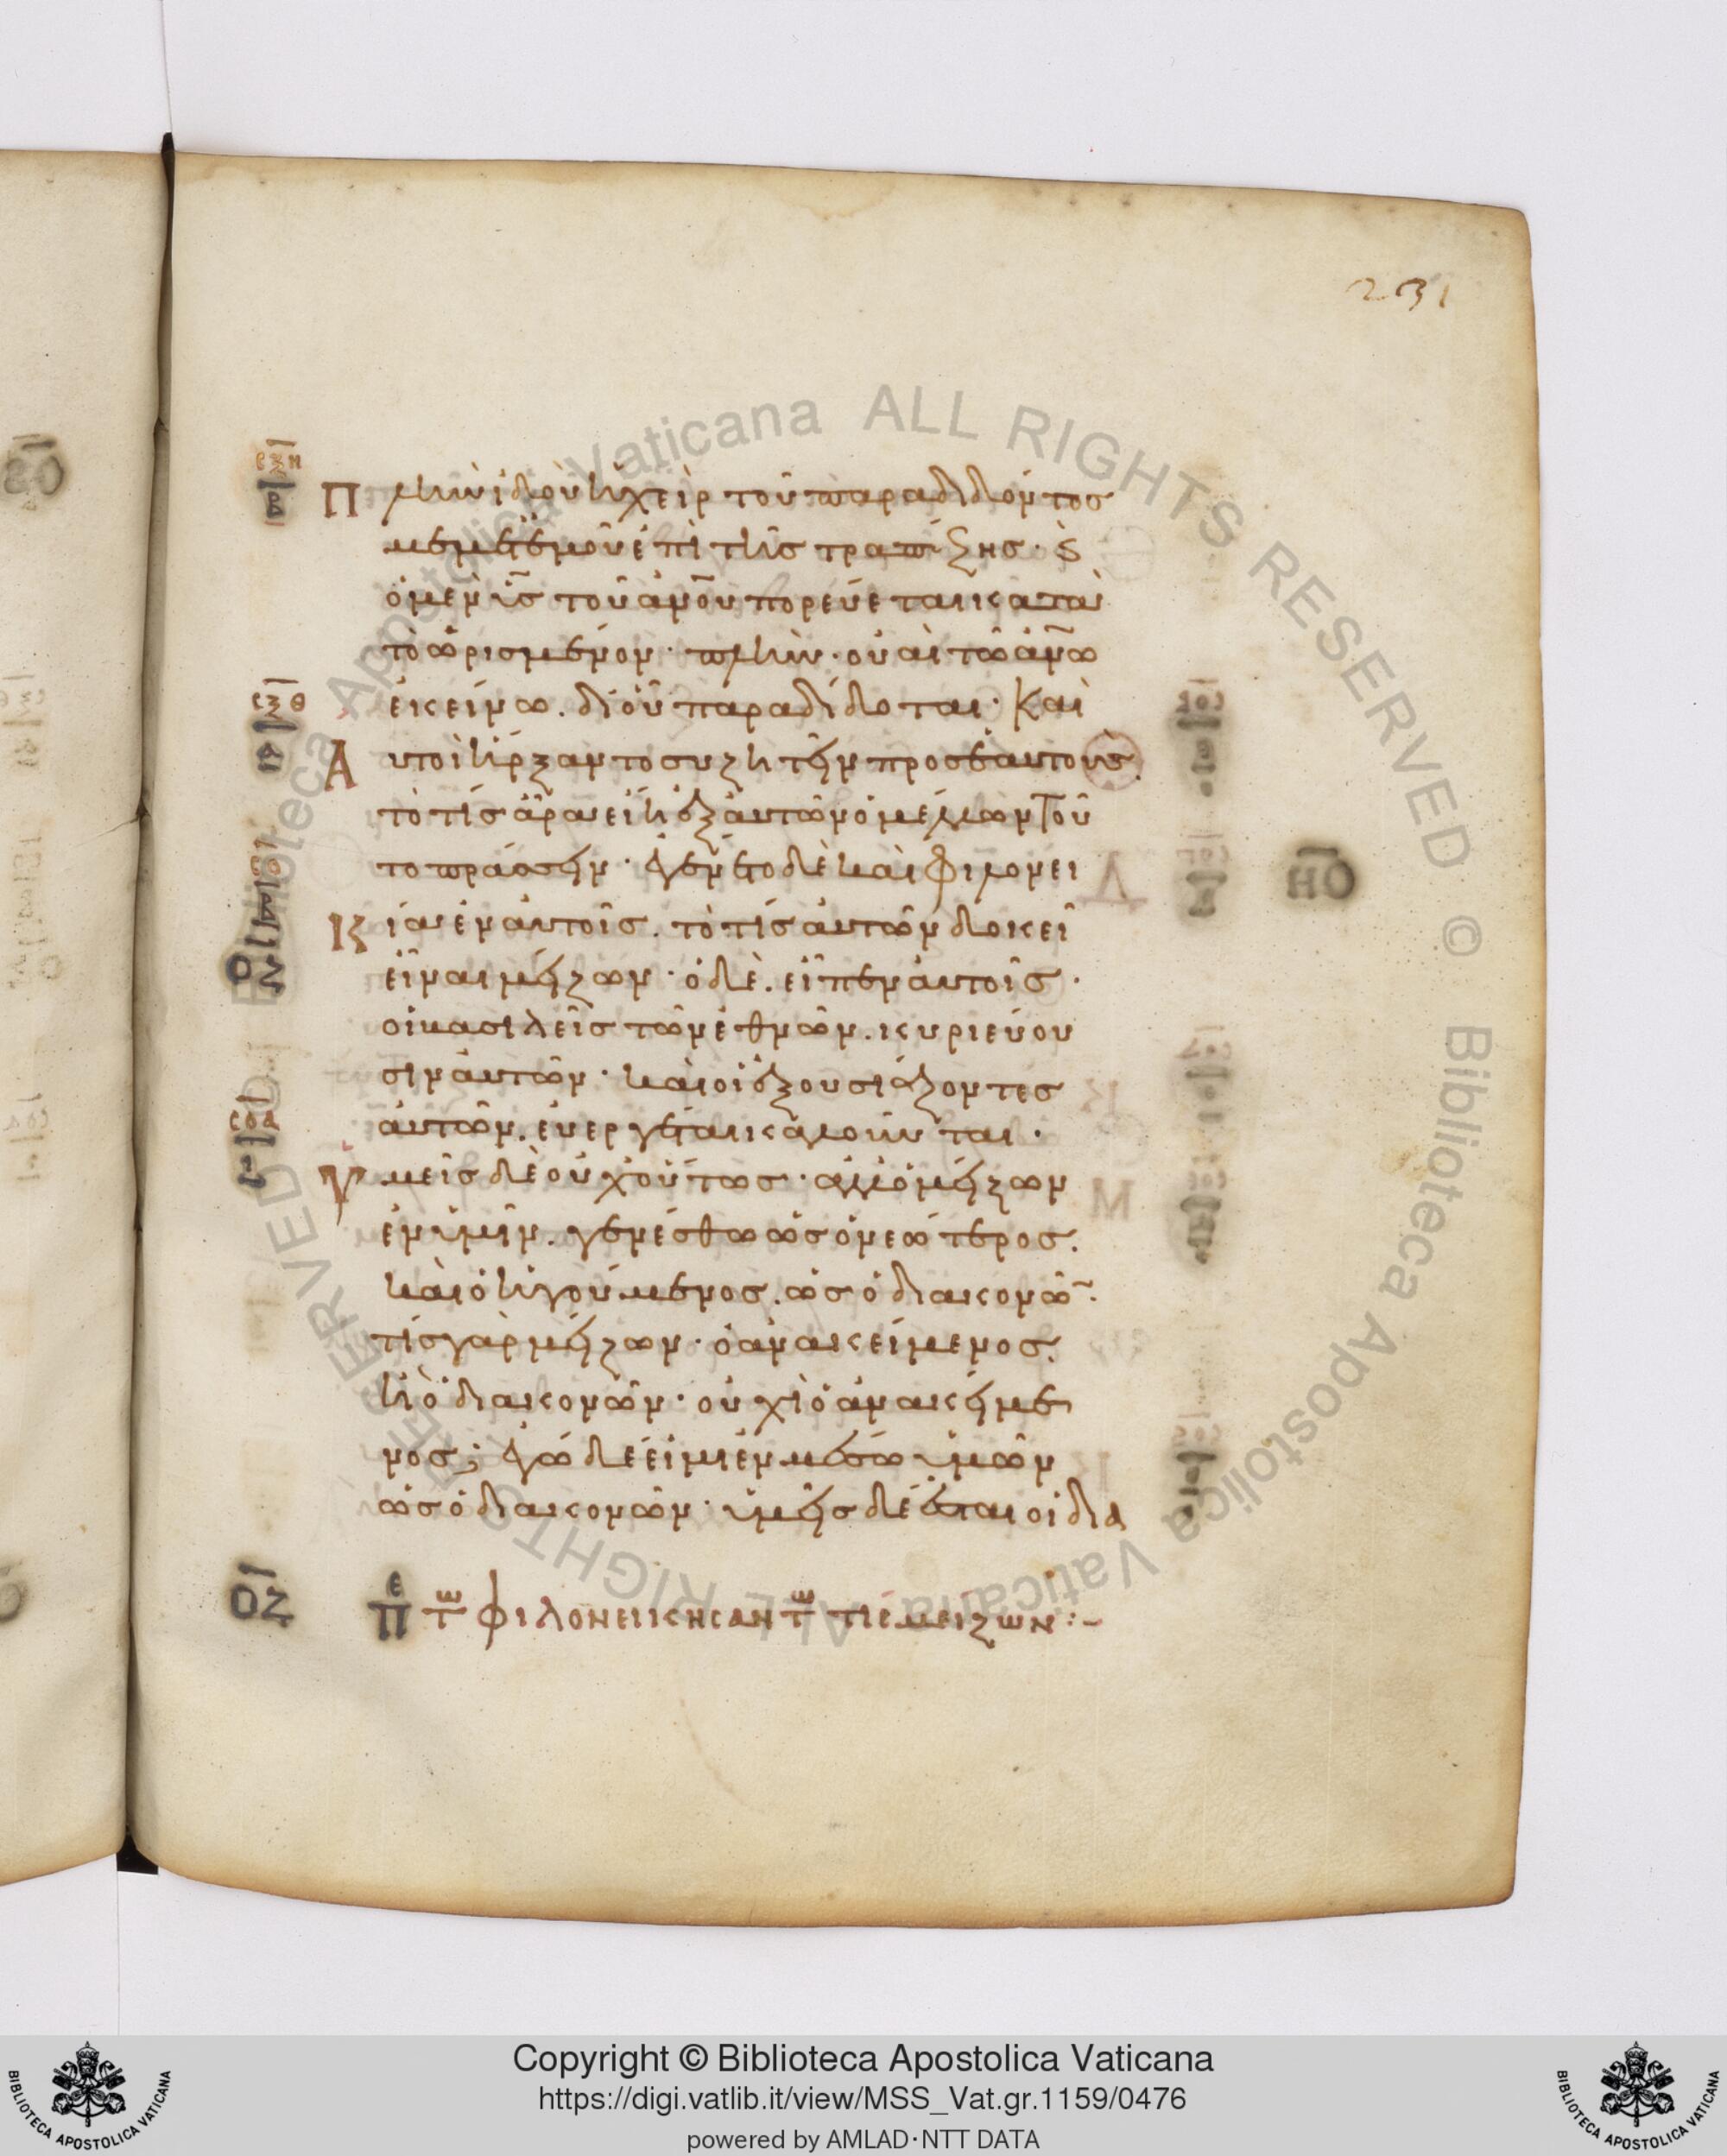 231
σξη
β
Πλὴν ἰδοὺ ἡ χεὶρ τοῦ παραδιδόντος
με μετ' ἐμοῦ ἐπὶ τῆς τραπέζης· ϗ
ὁ μὲν υ͞ς τοῦ ἀν͞ου πορεύεται κατὰ
τὸ ὡρισμένον· πλὴν· οὐαὶ τῶ ἀν͞ω
ἐκείνω. δι' οὗ παραδίδοται· Καὶ
σξθ
Αὐτοὶ ἤρξαντο συζητεῖν πρὸς ἑαυτοὺς.
τὸ τίς ἄρα εἴη ἐξ αὐτῶν ὁ μέλλων τοῦ
το πράσσειν· ἐγένετο δὲ καὶ φιλονει
Κία ἐν αὐτοῖς. τὸ τίς αὐτῶν δοκεῖ
εἶναι μείζων· ὁ δὲ. εἶπεν αὐτοῖς·
οἱ βασιλεῖς τῶν ἐθνῶν. κυριεύου
σιν αὐτῶν· καὶ οἱ ἐξουσιάζοντες
αὐτῶν. εὐεργέται καλοῦνται·
σοα
Ὑμεῖς δὲ οὐχ οὕτως· ἀλλ' ὁ μείζων
ἐν ὑμῖν. γενέσθω ὡς ὁ νεώτερος.
καὶ ὁ ἡγούμενος. ὡς ὁ διακονῶ͂·
τίς γὰρ μείζων· ὁ ἀνακείμενος.
ἢ ὁ διακονῶν· οὐχὶ ὁ ἀνακείμε
νος; ἐγὼ δέ εἰμι ἐν μέσω ὑμῶν
ὡς ὁ διακονῶν· ὑμεῖς δέ ἐσται οἱ δια
ΟΖ Πε τω φιλονεικησαντω τις μειζων :-
Biblioteca Apostolica Vaticana ALL RIGHTS RESERVED ©
Copyright © Biblioteca Apostolica Vaticana
https://digi.vatlib.it/view/MSS_Vat.gr.1159/0476
powered by AMLAD·NTT DATA
BIBLIOTECA APOSTOLICA VATICANA
BIBLIOTECA APOSTOLICA VATICANA